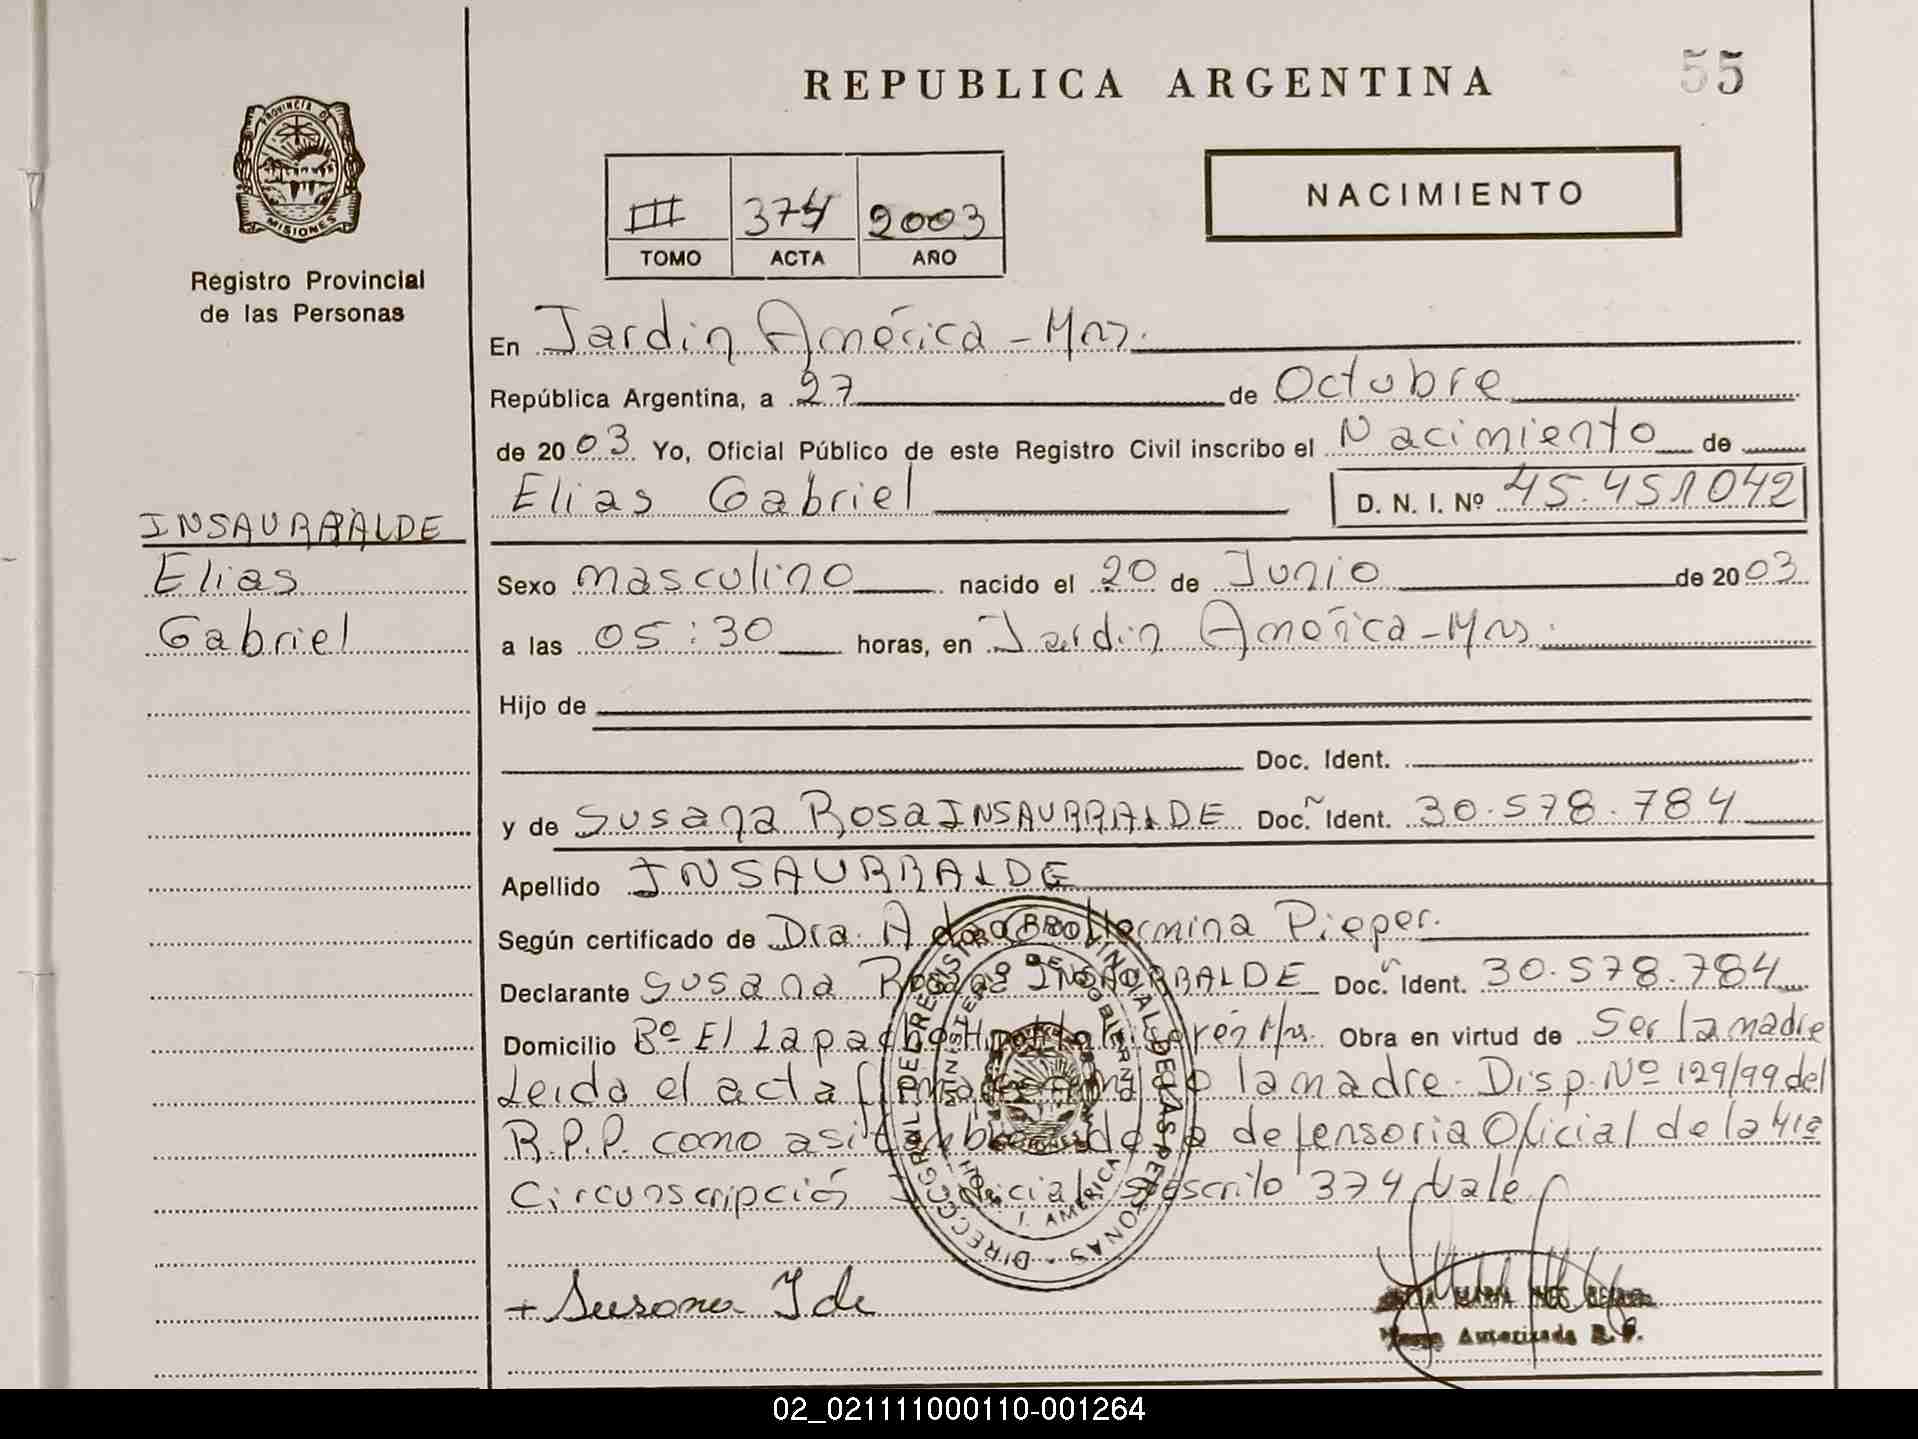 REPUBLICA ARGENTINA
55
PROVINCIA DE
MISIONES
Registro Provincial
de las Personas
III 374 2003
TOMO ACTA AÑO
NACIMIENTO
En Jardin América - Mns.
República Argentina, a 27 de Octubre
de 2003 Yo, Oficial Público de este Registro Civil inscribo el Nacimiento de
Elias Gabriel D. N. I. Nº 45.451042
INSAURRALDE
Elias
Gabriel
Sexo masculino nacido el 20 de Junio de 2003
a las 05:30 horas, en Jardin América - Mns.
Hijo de
Doc. Ident.
y de Susana Rosa INSAURRALDE Doc. Ident. 30.578.784
Apellido INSAURRALDE
Según certificado de Dra. Ada Hermina Pieper.
Declarante Susana Rosa INSAURRALDE Doc. Ident. 30.578.784
Domicilio Bº El Lapacho Mns. Obra en virtud de Ser la madre
Leida el acta la madre. Disp. Nº 129/99 del
R.P.P. como asi defensoria Oficial de la 4ta
Circunscripción 374 Vale
DIRECCION GRAL DEL REGISTRO PROVINCIAL DE LAS PERSONAS
MINISTERIO DE GOBIERNO
J. AMERICA
+ Susana
MARIA INES
Autorizada R. P.
02_021111000110-001264